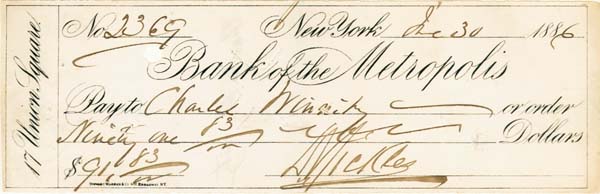 17 Union Square.
No. 2369 New-York, Dec 30 1886
Bank of the Metropolis
Pay to Charles or order
Ninety one 83/100 Dollars
$91, 83/100 DSickles